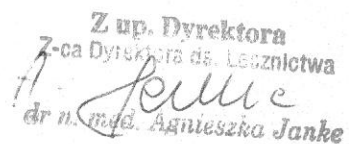 Z up. Dyrektora
Z-ca Dyrektora ds. Lecznictwa
A. Janke
dr n. med. Agnieszka Janke